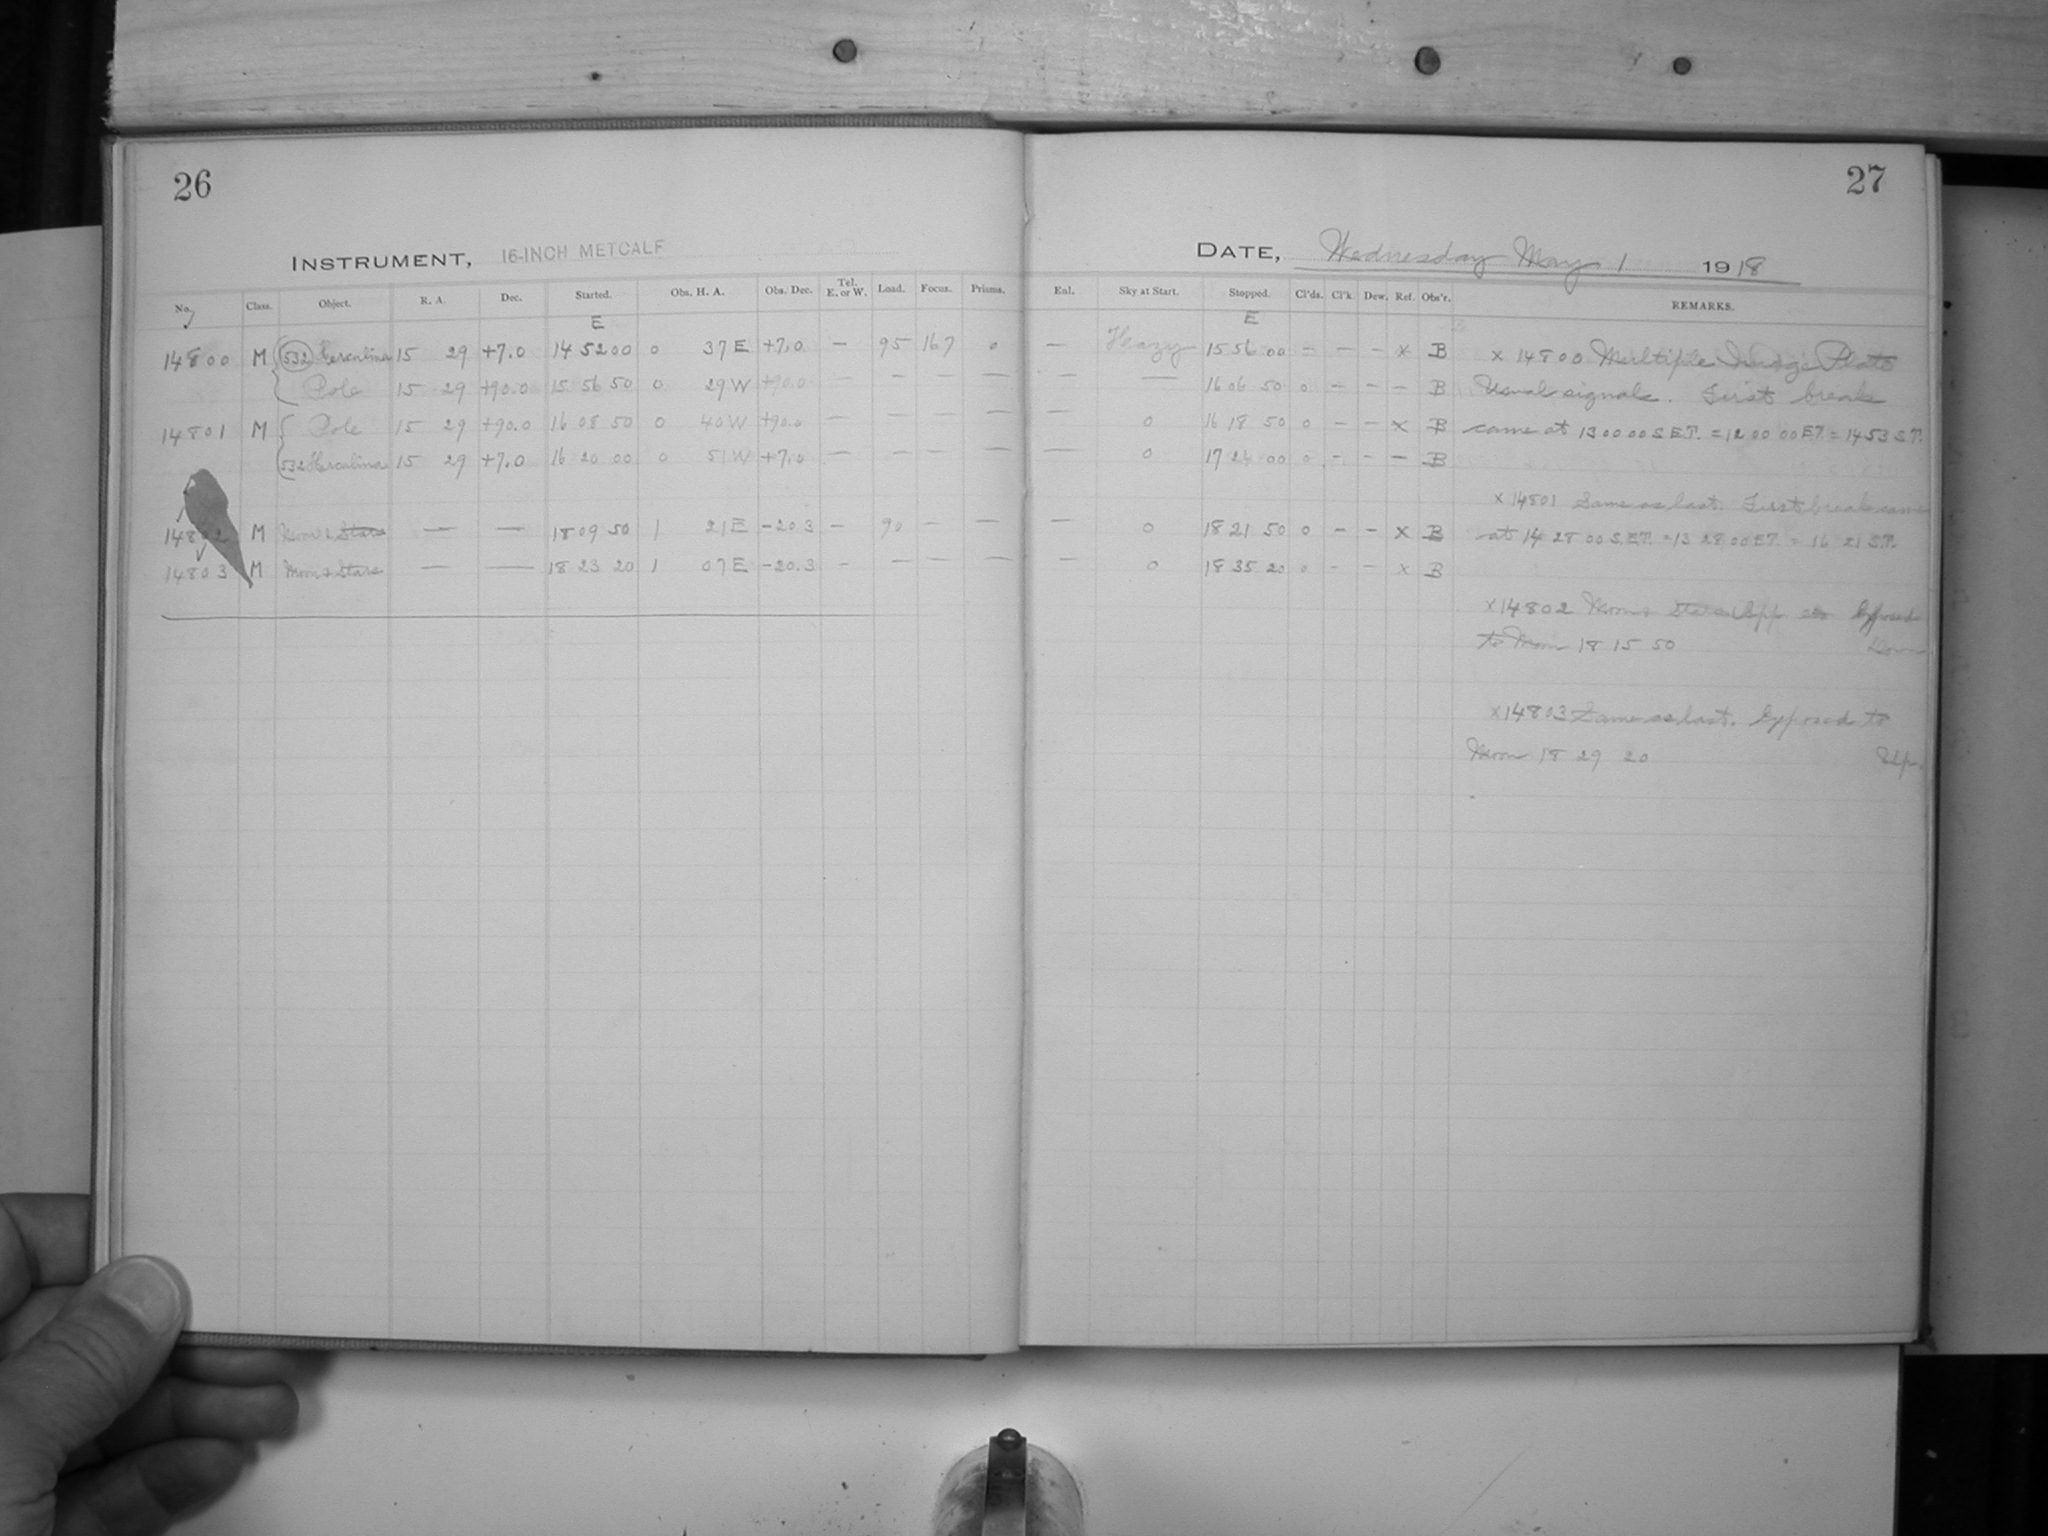 26
27
INSTRUMENT, 16-INCH METCALF
DATE, Wednesday May 1 1918
No. Class. Object. R. A. Dec. Started. Obs. H. A. Obs. Dec. Tel. E. or W. Load. Focus. Prisms. Enl. Sky at Start. Stopped. Cl'ds. Cl'k. Dew. Ref. Obs'r. REMARKS.
E E
14800 M 532 Herculina 15 29 +7.0 14 52 00 0 37 E +7.0 — 95 167 0 — Hazy 15 56 00 — — — x B x 14800 Multiple Image Plate
Pole 15 29 +90.0 15 56 50 0 29 W +90.0 — — — — — — 16 06 50 0 — — — B Usual signals. First break
14801 M Pole 15 29 +90.0 16 08 50 0 40 W +90.0 — — — — — 0 16 18 50 0 — — x B came at 13 00 00 S.E.T. = 12 00 00 E.T. = 14 53 S.T.
532 Herculina 15 29 +7.0 16 20 00 0 51 W +7.0 — — — — — 0 17 24 00 0 — — — B
x 14801 Same as last. First break came
14802 M Moon & Stars — — 18 09 50 1 21 E -20.3 — 90 — — — 0 18 21 50 0 — — x B at 14 28 00 S.E.T. = 13 28 00 E.T. = 16 21 S.T.
14803 M Moon & Stars — — 18 23 20 1 07 E -20.3 — — — — — 0 18 35 20 0 — — x B
x 14802 Moon & Stars Exposed
to Moon 18 15 50 Down
x 14803 Same as last. Exposed to
Moon 18 29 20 Up.